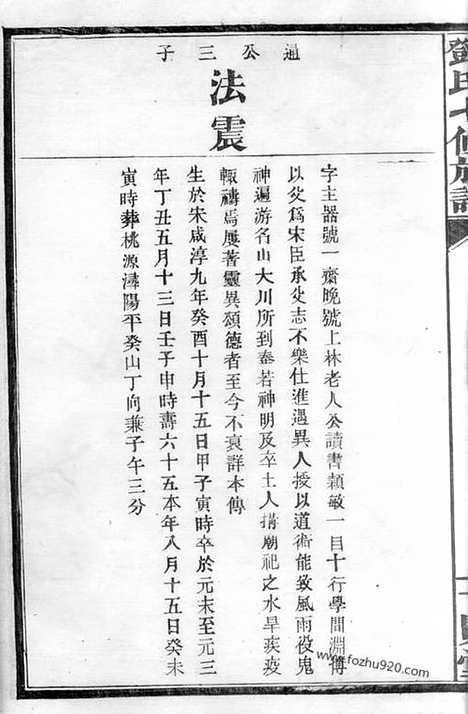 鄧氏七修族譜
通公三子
法震
字主器號一齋晚號上林老人公讀書穎敏一目十行學問淵博
以父爲宋臣承父志不樂仕進遇異人授以道術能致風雨役鬼
神遍游名山大川所到奉若神明及卒土人搆廟祀之水旱疾疫
輒禱焉屢著靈異頌德者至今不衰詳本傳
生於宋咸淳九年癸酉十月十五日甲子寅時卒於元未至元三
年丁丑五月十三日壬子申時壽六十五本年八月十五日癸未
寅時葬桃源潯陽平癸山丁向兼子午三分
www.fozhu920.com